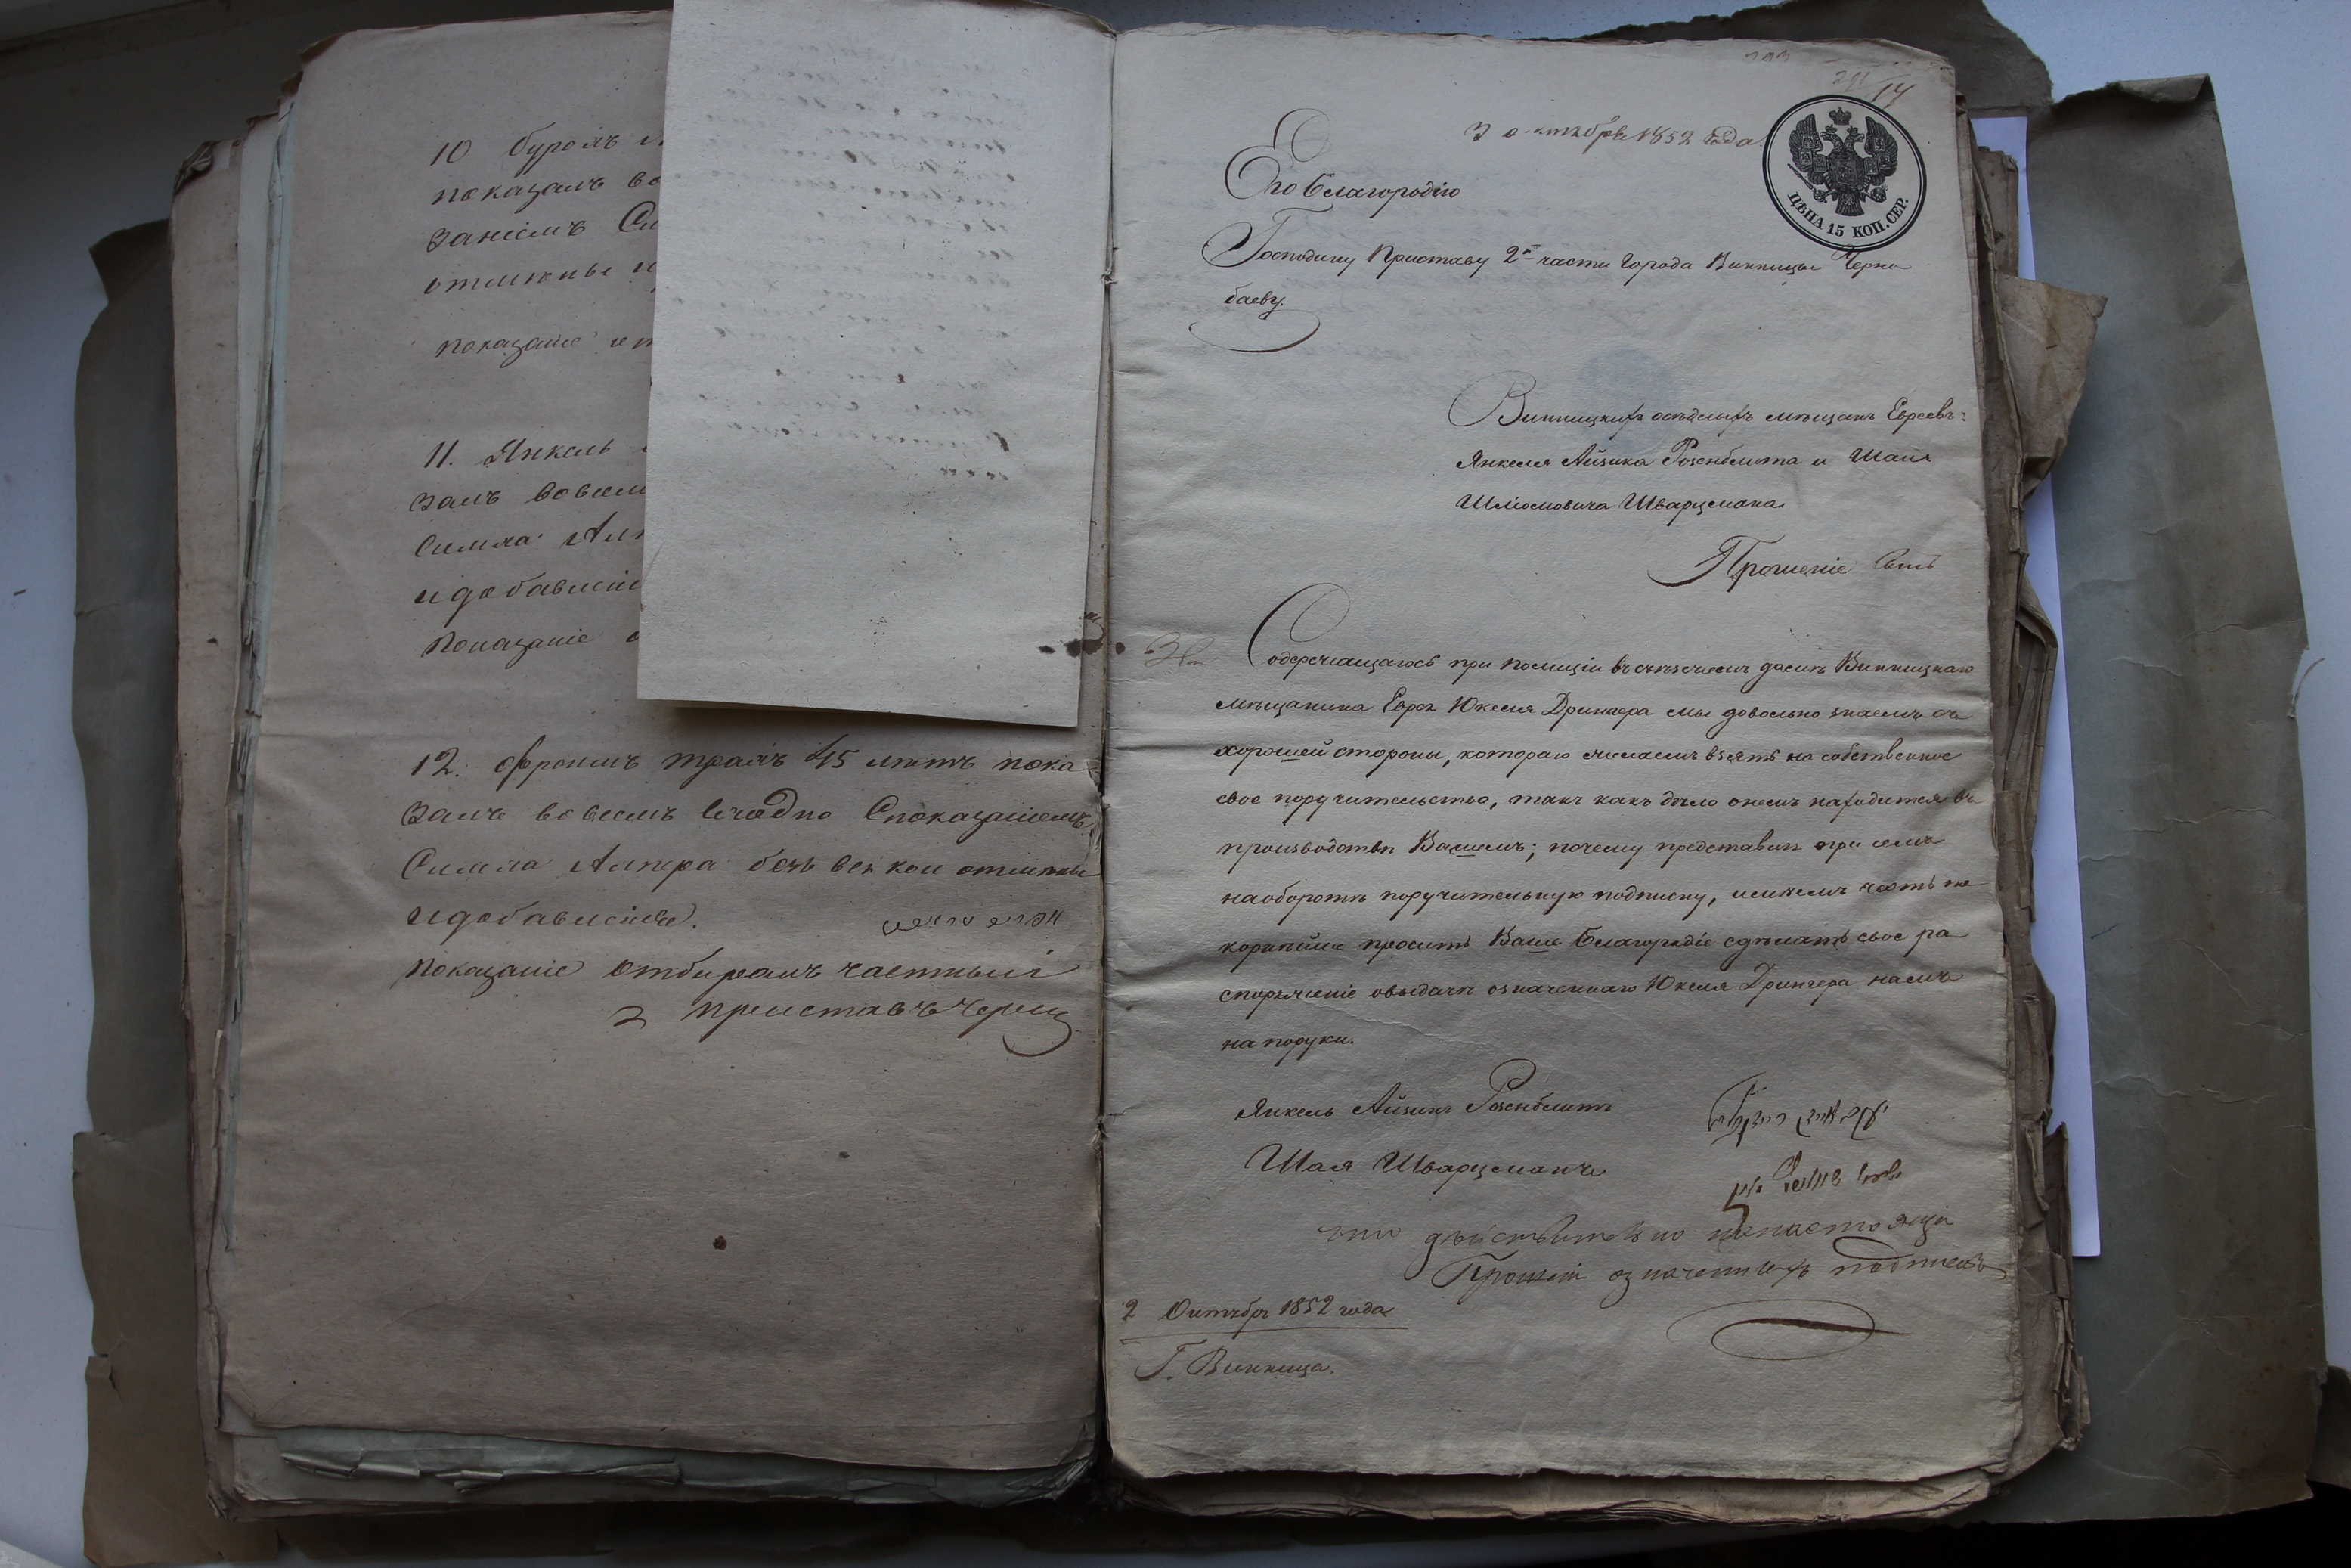 10 Бурохъ
показалъ во
занiемъ Си
отмѣны и
показанiе от
11. Янкель
залъ вовсемъ
Симха Алп
и добавленiй
Показанiе о
12. Фроимъ 45 лѣтъ пока
залъ вовсемъ сходно Споказанiемъ
Симха Алпера безъ всякой отмѣны
и добавленiя.
показанiе отбиралъ частный
приставъ Черн
14
3 октября 1852 года
ЦѢНА 15 КОП. СЕР.
Его Благородiю
Господину Приставу 2й части Города Винницы Черно
баеву.
Винницкихъ осѣдлыхъ мѣщанъ Евреевъ:
Янкеля Айзика Розенблита и Шаи
Шлiомовича Шварцмана
Прошенiе
Содержащагося при полицiи въ съѣзжемъ домѣ Винницкаго
мѣщанина Еврея Юкеля Дрингера мы довольно знаемъ съ
хорошей стороны, котораго желаемъ взять на собственное
свое поручительство, такъ какъ дѣло о немъ находится въ
производствѣ Вашемъ; почему представивъ при семъ
на оборотѣ поручительную подписку, имѣемъ честь по
корнѣйше просить Ваше Благородiе сдѣлать свое ра
споряженiе о выдачѣ означеннаго Юкеля Дрингера намъ
на поруки.
Янкель Айзикъ Розенблитъ
Шая Шварцманъ
что дѣйствительно на настоящемъ
Прошенiи означенныхъ подписей
2 Октября 1852 года
Г. Винница.